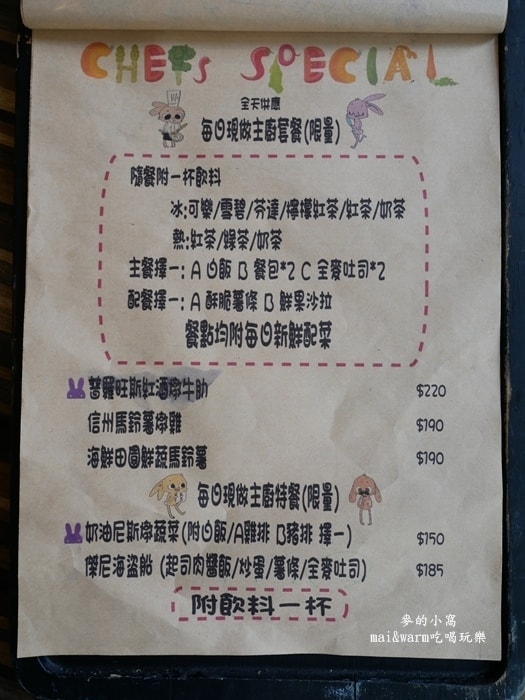 CHEFs SPECIAL
全天供應
每日現做主廚套餐(限量)
隨餐附一杯飲料
冰:可樂/雪碧/芬達/檸檬紅茶/紅茶/奶茶
熱:紅茶/綠茶/奶茶
主餐擇一: A 白飯 B 餐包*2 C 全麥吐司*2
配餐擇一: A 酥脆薯條 B 鮮果沙拉
餐點均附每日新鮮配菜
普羅旺斯紅酒燉牛肋 $220
信州馬鈴薯燉雞 $190
海鮮田園鮮蔬馬鈴薯 $190
每日現做主廚特餐(限量)
奶油尼斯燉蔬菜(附白飯/A雞排 B豬排 擇一) $150
傑尼海盜船 (起司肉醬飯/炒蛋/薯條/全麥吐司) $185
附飲料一杯
麥的小窩
mai&warm吃喝玩樂